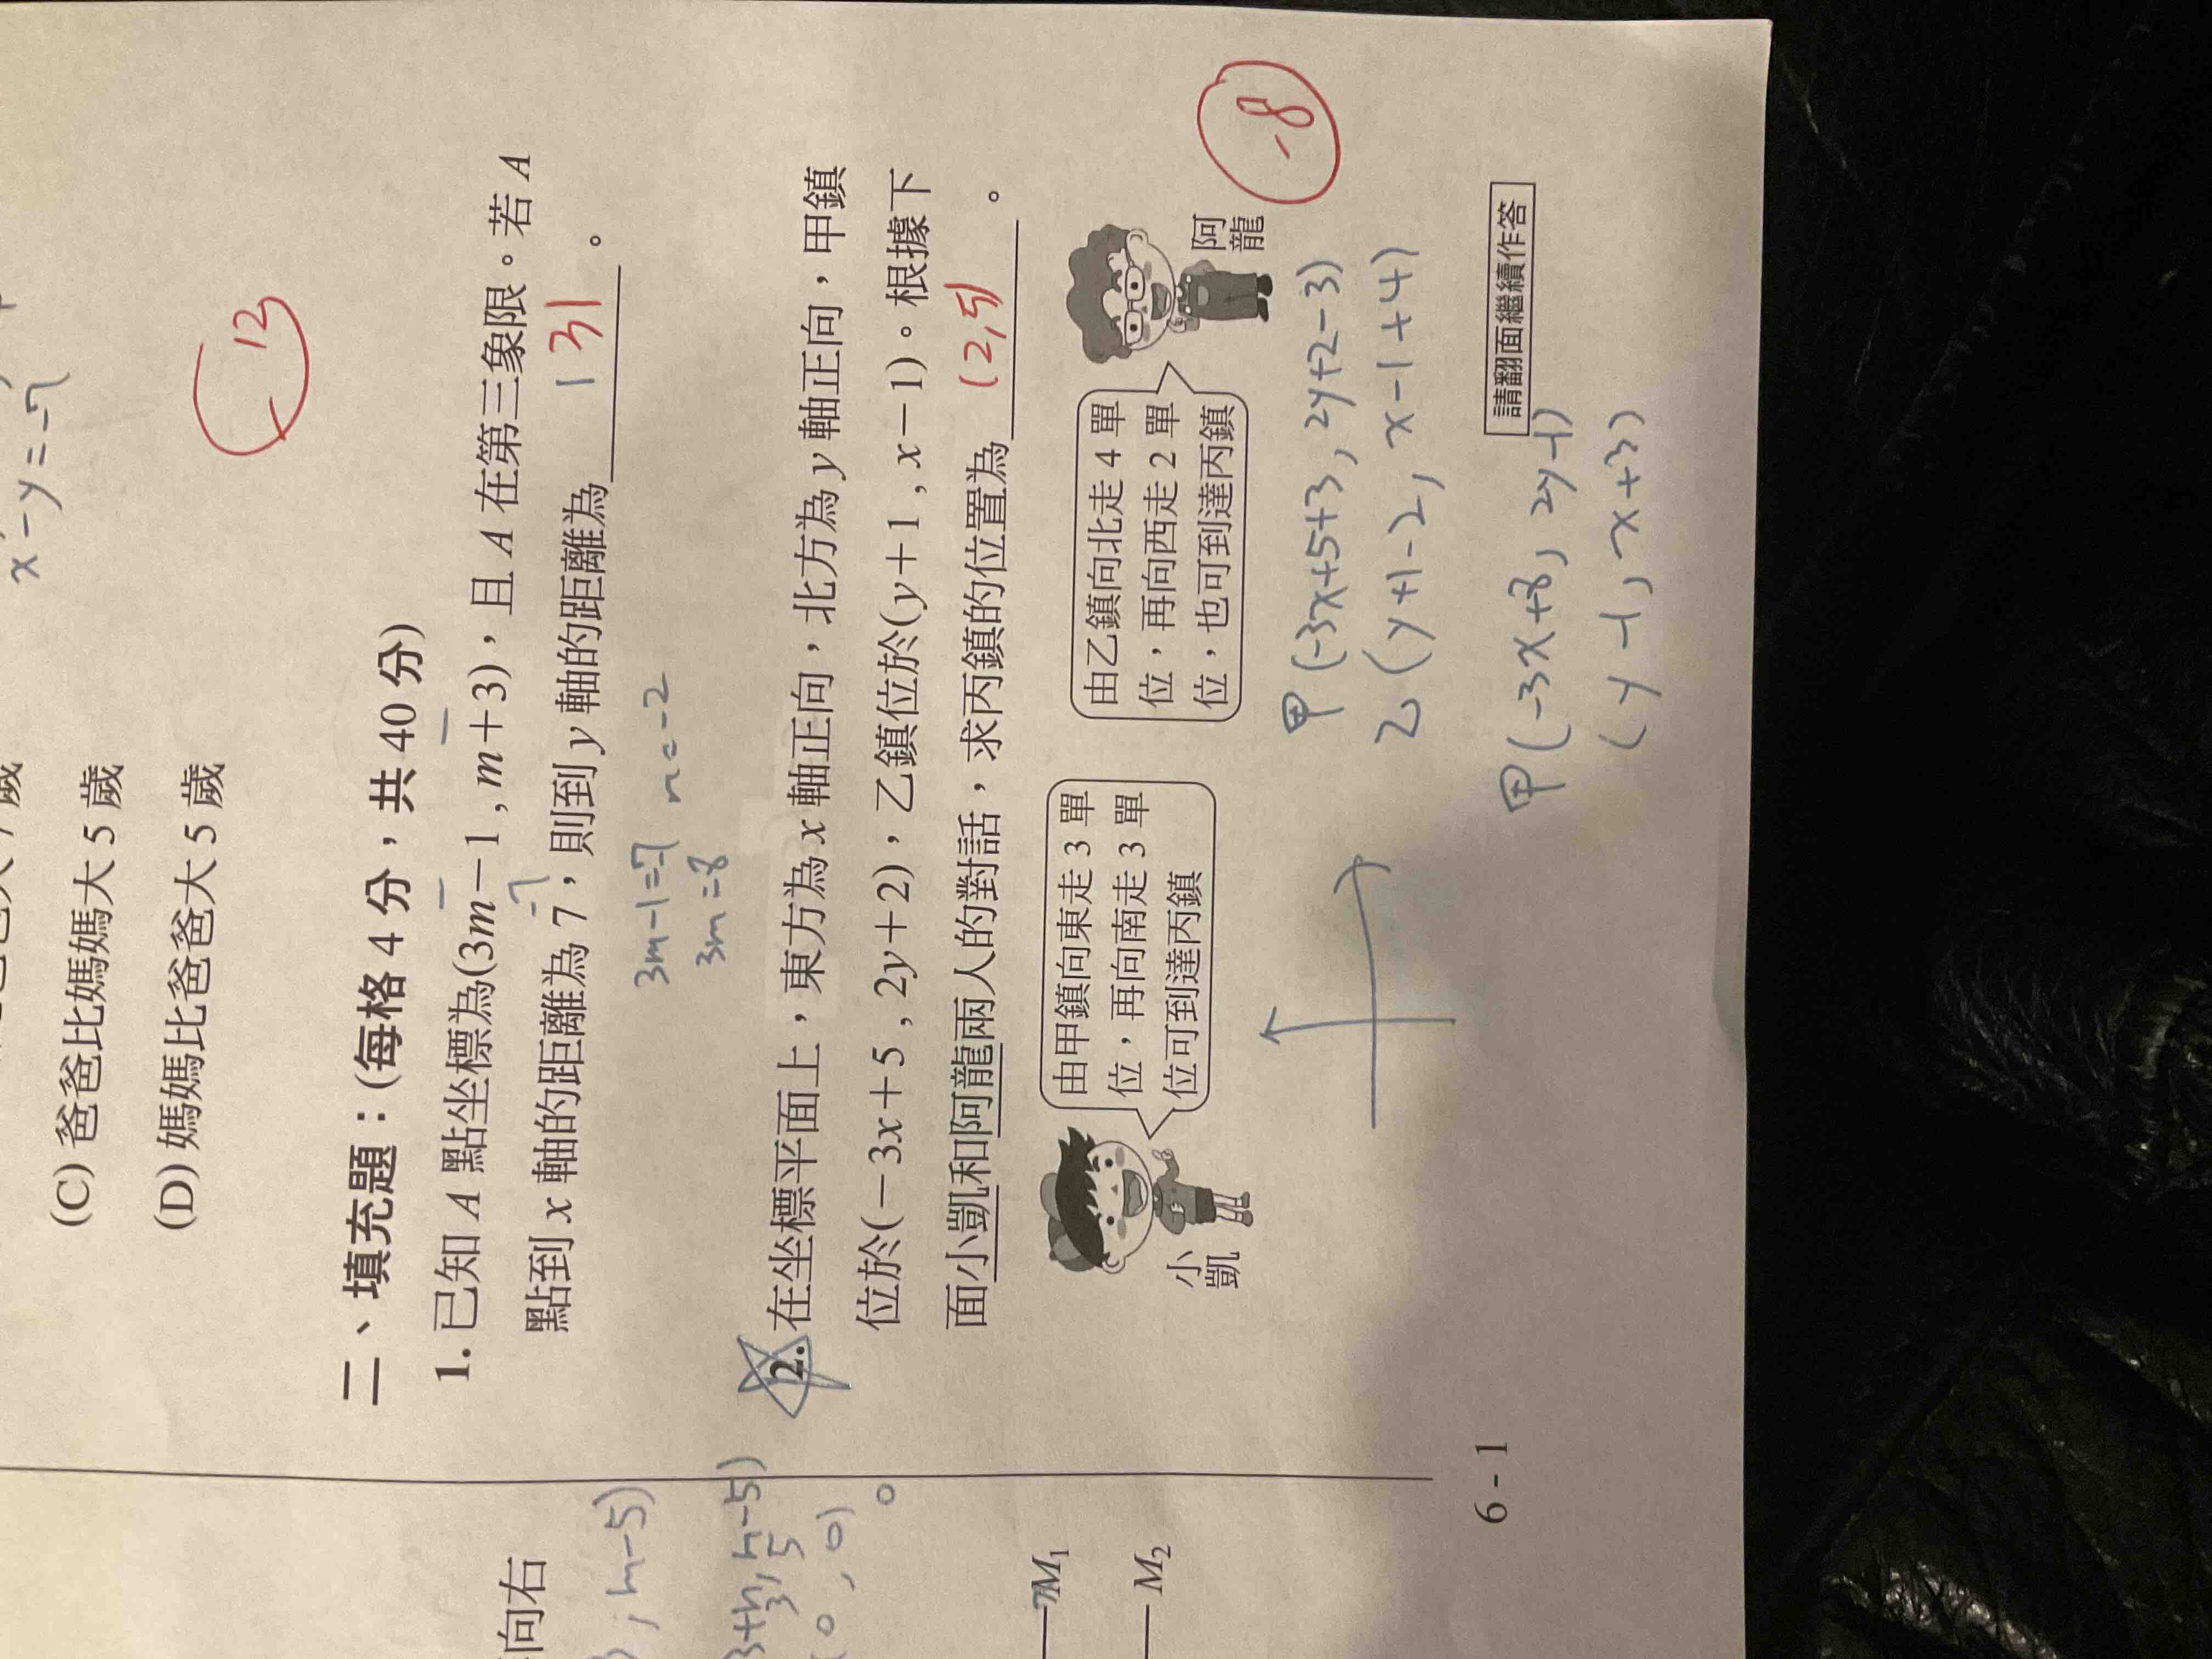 x-y=-7
(C) 爸爸比媽媽大 5 歲
(D) 媽媽比爸爸大 5 歲
13
二、填充題：(每格 4 分，共 40 分)
1. 已知 A 點坐標為(3m-1 , m+3)，且 A 在第三象限。若 A
點到 x 軸的距離為 7，則到 y 軸的距離為 31 。
-7
3m-1=-7
3m=-8
2. 在坐標平面上，東方為 x 軸正向，北方為 y 軸正向，甲鎮
位於(-3x+5 , 2y+2)，乙鎮位於(y+1 , x-1)。根據下
面小凱和阿龍兩人的對話，求丙鎮的位置為 (2,5) 。
小凱
由甲鎮向東走 3 單
位，再向南走 3 單
位可到達丙鎮
由乙鎮向北走 4 單
位，再向西走 2 單
位，也可到達丙鎮
阿龍
-8
甲(-3x+5+3, 2y+2-3)
乙(y+1-2, x-1+4)
甲(-3x+8, 2y-1)
(y-1, x+3)
請翻面繼續作答
6 - 1
向右
, n-5)
(0, 0)
。
M1
M2